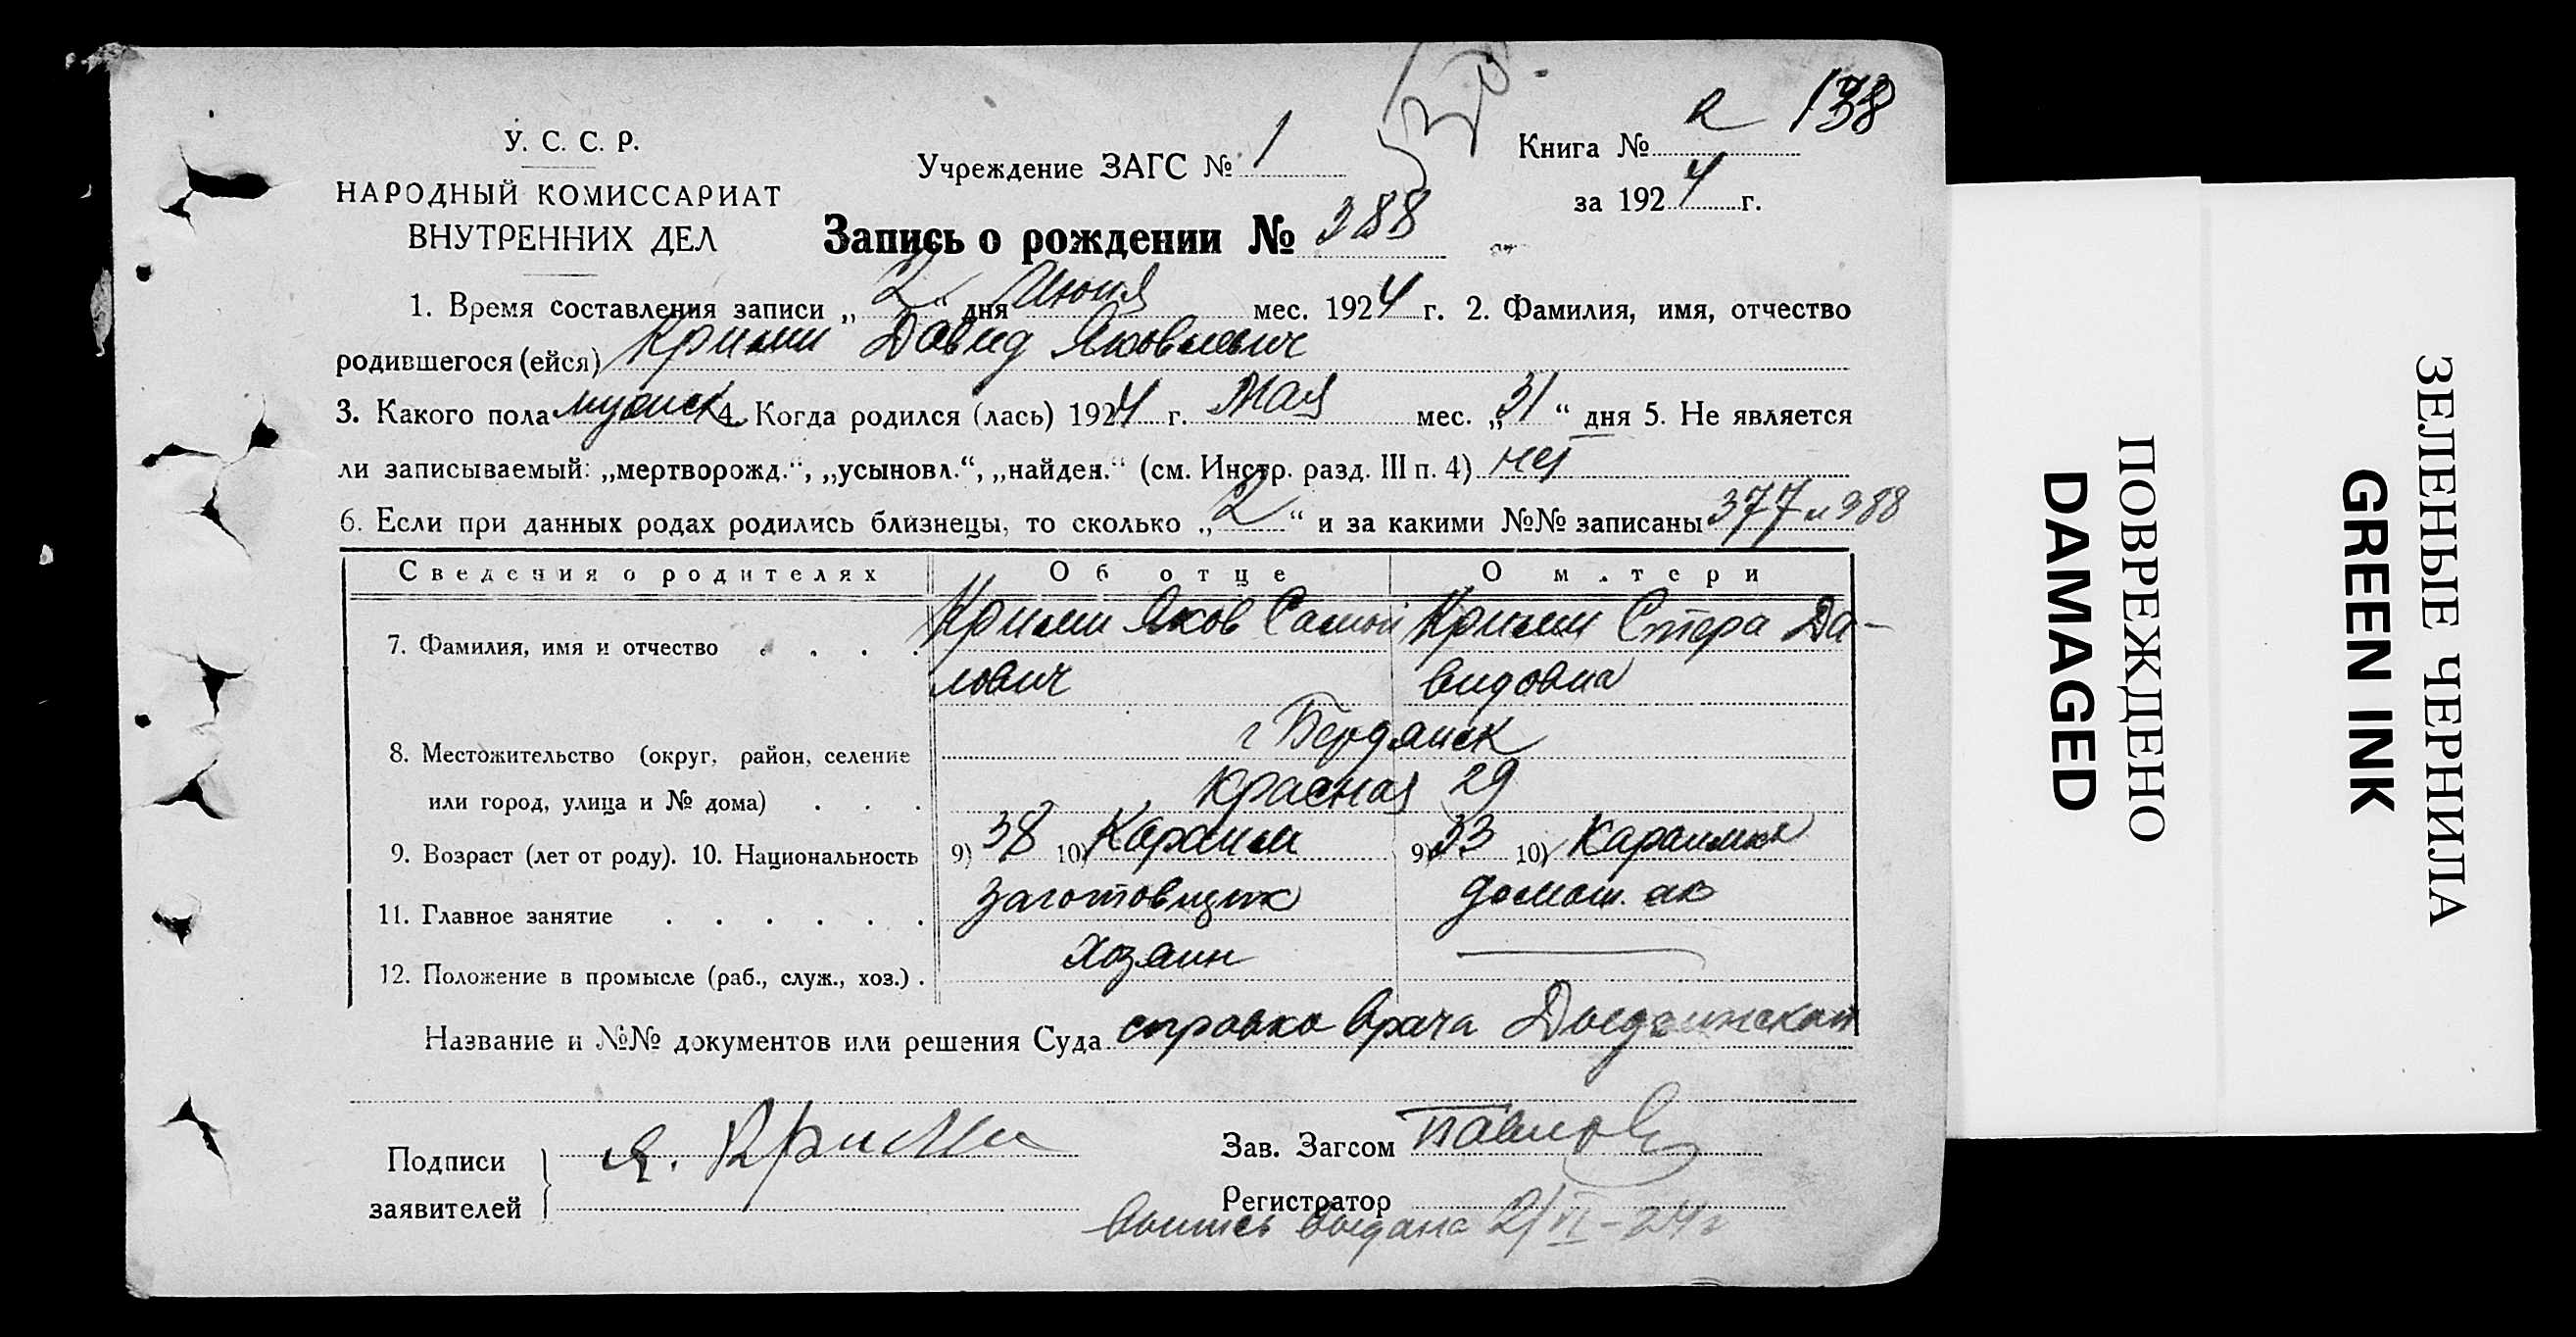 138
У. С. С. Р.
Учреждение ЗАГС № 1
Книга № 2
НАРОДНЫЙ КОМИССАРИАТ
за 1924 г.
ВНУТРЕННИХ ДЕЛ
Запись о рождении № 388
1. Время составления записи „2“ дня Июня мес. 1924 г. 2. Фамилия, имя, отчество
родившегося (ейся) Крими Давид Яковлевич
3. Какого пола мужск 4. Когда родился (лась) 1924 г. Мая мес. „31“ дня 5. Не является
ли записываемый: „мертворожд.“, „усыновл.“, „найден.“ (см. Инстр. разд. III п. 4) нет
6. Если при данных родах родились близнецы, то сколько „2“ и за какими №№ записаны 377 и 388
Сведения о родителях Об отце О матери
7. Фамилия, имя и отчество . . . . Крими Яков Самой Крими Стера Да-
лович видовна
г Бердянск
8. Местожительство (округ, район, селение
или город, улица и № дома) . . . Красная 29
9. Возраст (лет от роду). 10. Национальность 9) 38 10) Караим 9) 33 10) Караимка
11. Главное занятие . . . . . . заготовщик домаш.
12. Положение в промысле (раб., служ., хоз.) . хозяин —
Название и №№ документов или решения Суда справка врача
Подписи
заявителей
Я. Крими
Зав. Загсом Павлов
Регистратор
выпись выдана 2/VI-24 г
ПОВРЕЖДЕНО
DAMAGED
ЗЕЛЕНЫЕ ЧЕРНИЛА
GREEN INK